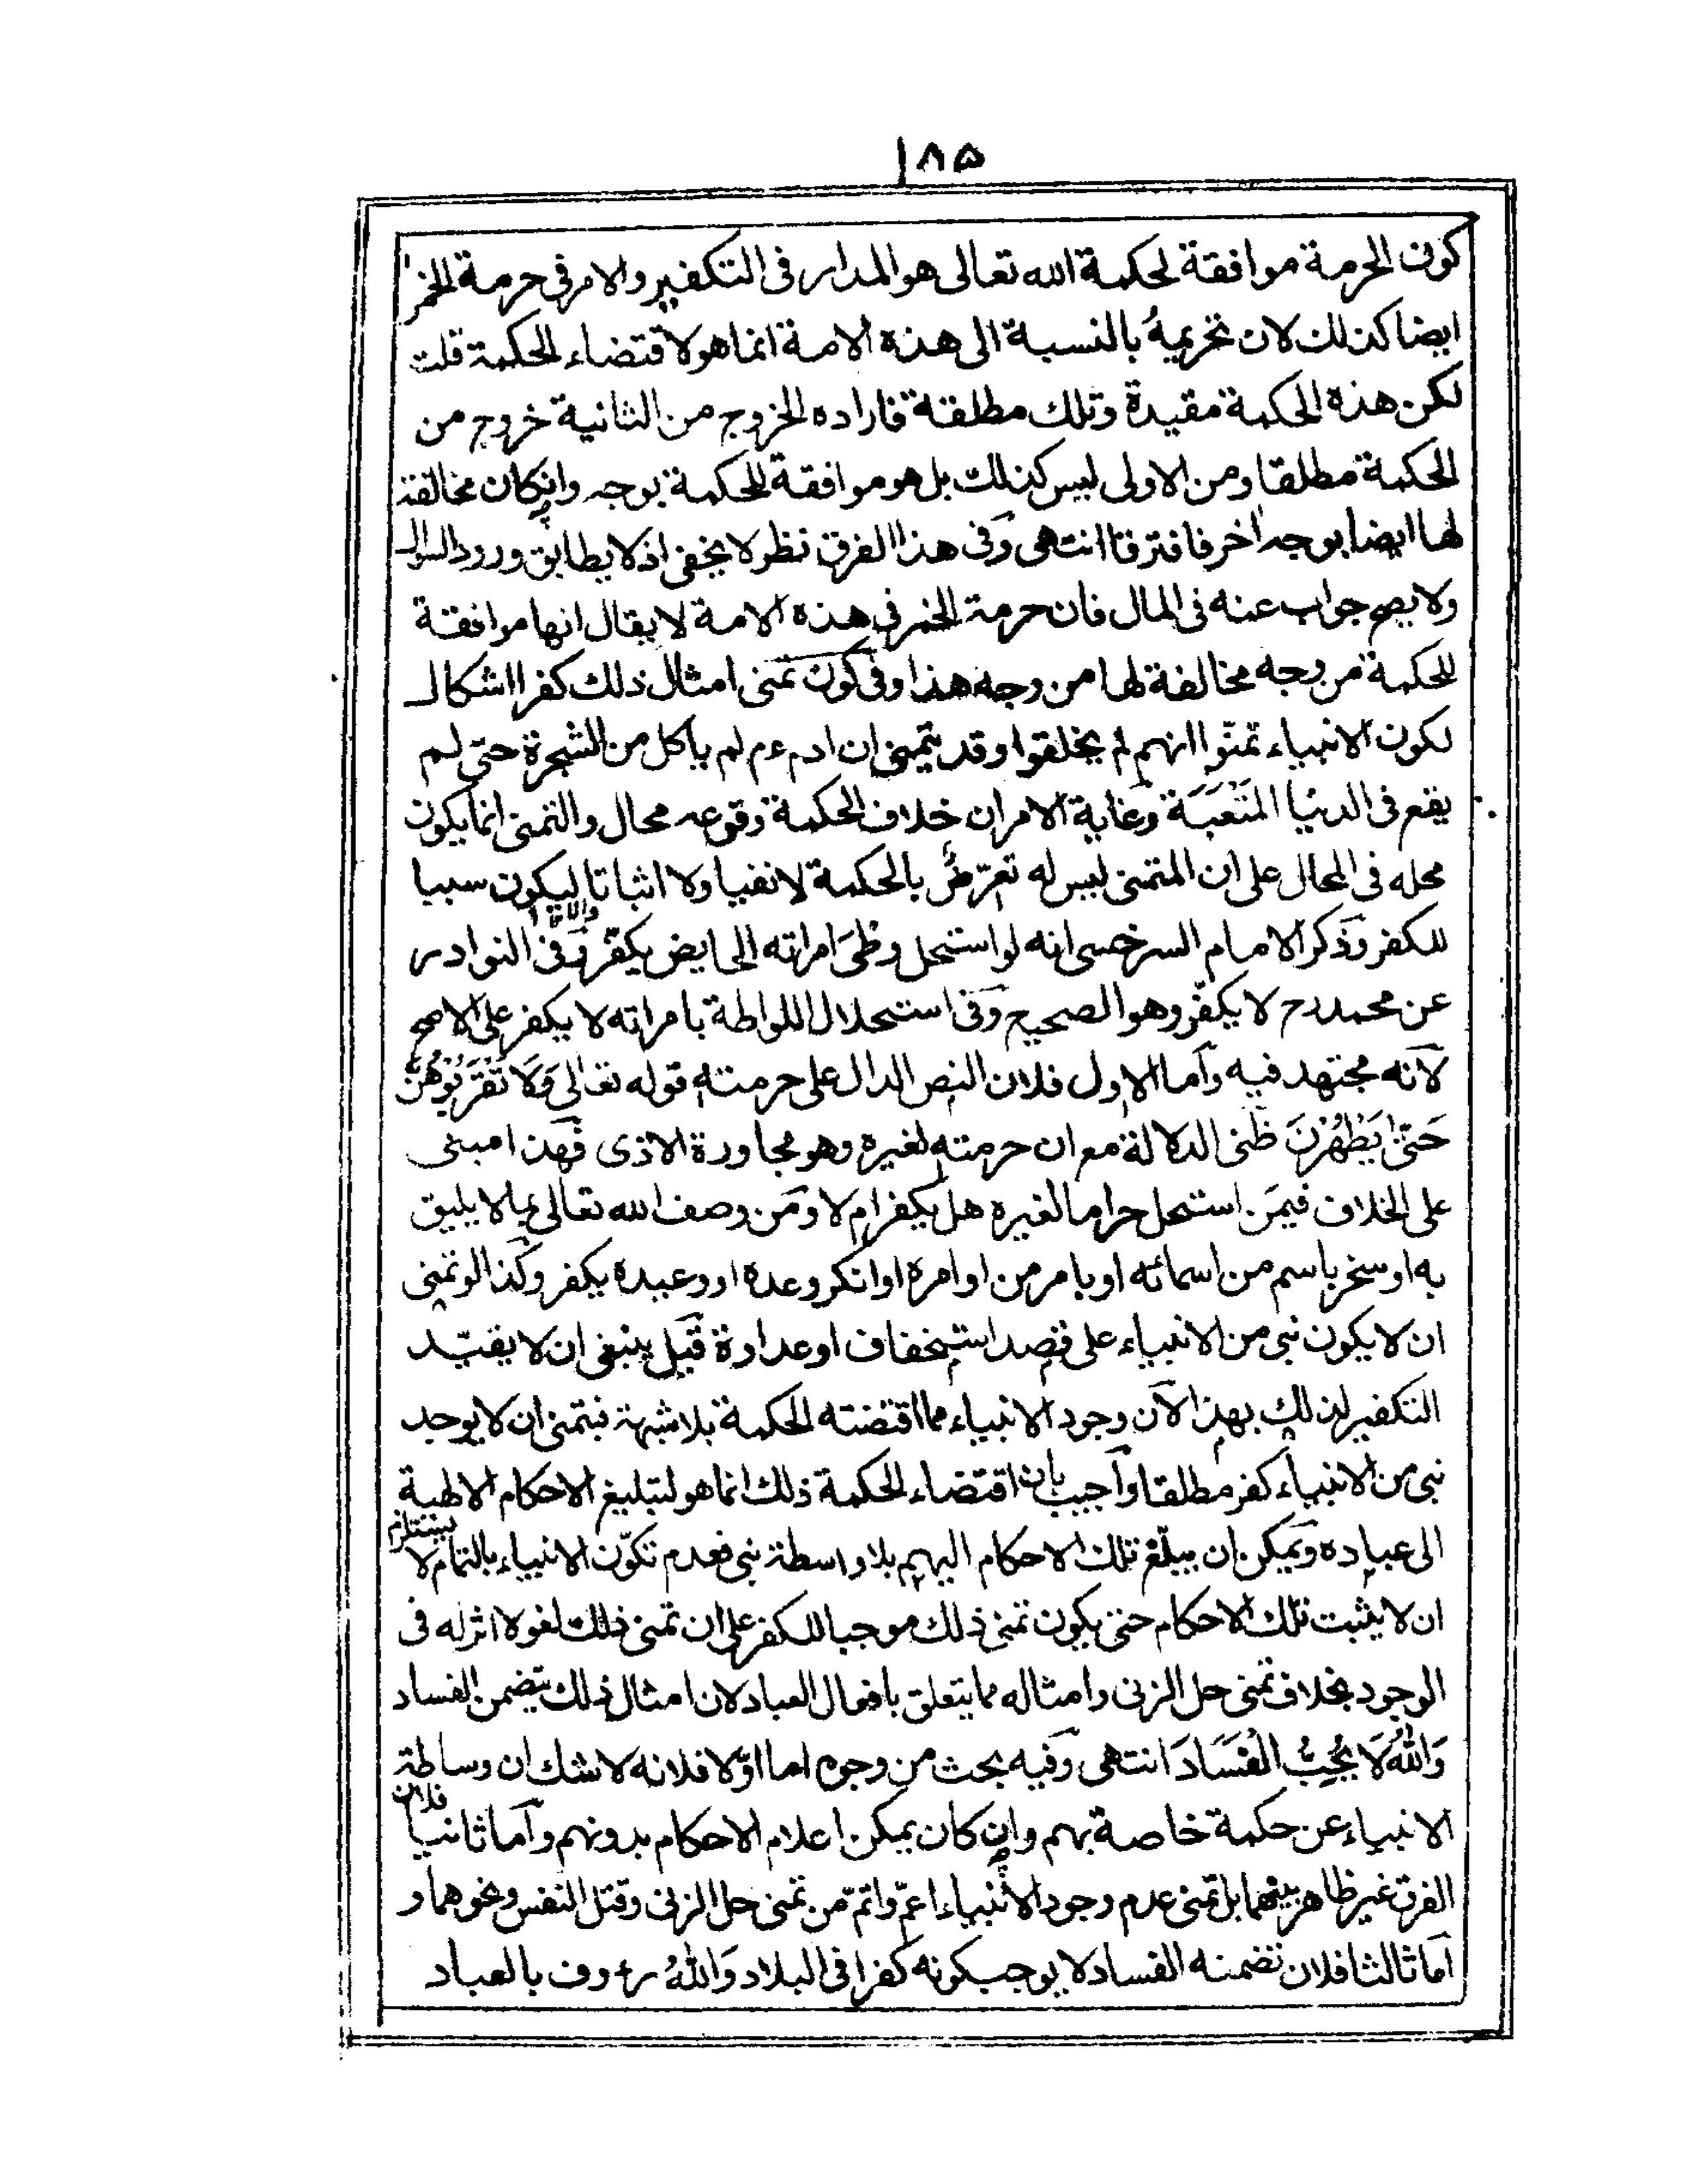 ١٨٥
كون الحرمة موافقة لحكمة الله تعالى هو المدار فى التكفير والامر فى حرمة الخمر
ايضا كذلك لان تحريمهُ بالنسبة الى هذه الامة انما هو لاقتضاء الحكمة قلت
لكن هذه الحكمة مقيدة وتلك مطلقة فاراده الخروج من الثانية خروج من
الحكمة مطلقا ومن الاولى ليس كذلك بل هو موافقة للحكمة بوجه وانكان مخالفة
لها ايضا بوجه اخر فافترقا انتهى وفى هذا الفرق نظر لا يخفى اذ لا يطابق ورود السوال
ولا يصح جواب عنه فى المال فان حرمة الخمر فى هذه الامة لا يقال انها موافقة
للحكمة من وجه مخالفة لها من وجه هذا وفى كون تمنى امثال ذلك كفرا اشكال
لكون الانبياء تمنّوا انهم لم يخلقوا وقد يتمنى ان ادم ءم لم ياكل من الشجرة حتى لم
يقع فى الدنيا المَتْعَبَة وغاية الامر ان خلاف الحكمة وقوعه محال والتمنى انما يكون
محله فى المحال على ان المتمنى ليس له تعرّضٌ بالحكمة لا نفيا ولا اثباتا ليكون سببا
للكفر وذكر الامام السرخسى انه لو استحل وطئ امراته الحايض يكفّر وفى النوادر
عن محمد رح لا يكفّر وهو الصحيح وفى استحلال اللواطة بامراته لا يكفر على الاصح
لانه مجتهد فيه واما الاول فلان النص الدال على حرمته قوله تعالى وَلَا تَقْرَبُوْهُنَّ
حَتّى يَطْهُرْنَ ظنى الدلالة مع ان حرمته لغيره وهو مجاورة الاذى فهذا مبنى
على الخلاف فيمن استحل حراما لغيره هل يكفر ام لا ومن وصف الله تعالى بما لا يليق
به او سخر باسم من اسمائه او بامر من اوامره او انكر وعده او وعيده يكفر وكذا لو تمنى
ان لا يكون نبى من الانبياء على قصد استخفاف او عداوة قيل ينبغى ان لا يقيّد
التكفير لذلك بهذا لان وجود الانبياء مما اقتضته الحكمة بلا شبهة فتمنى ان لا يوجد
نبى من الانبياء كفر مطلقا واجيب بان اقتضاء الحكمة ذلك انما هو لتبليغ الاحكام الالهية
الى عباده ويمكن ان يبلّغ تلك الاحكام اليهم بلا واسطة نبى فعدم تكوّن الانبياء بالتمام لا يستلزم
ان لا يثبت تلك الاحكام حتى يكون تمنى ذلك موجبا للكفر على ان تمنى ذلك لغو لا اثر له فى
الوجود بخلاف تمنى حل الزنى وامثاله مما يتعلق بافعال العباد لان امثال ذلك يتضمن الفساد
وَاللّٰهُ لَا يُحِبُّ الْفَسَادَ انتهى وفيه بحث من وجوه اما اوّلا فلانه لا شك ان وساطة
الانبياء عن حكمة خاصة بهم وان كان يمكن اعلام الاحكام بدونهم واما ثانيا فلان
الفرق غير ظاهر بينهما بل تمنى عدم وجود الانبياء اعمّ واتمّ من تمنى حل الزنى وقتل النفس ونحوهما و
اما ثالثا فلان تضمنه الفساد لا يوجب كونه كفرا فى البلاد وَاللّٰهُ رءوف بالعباد